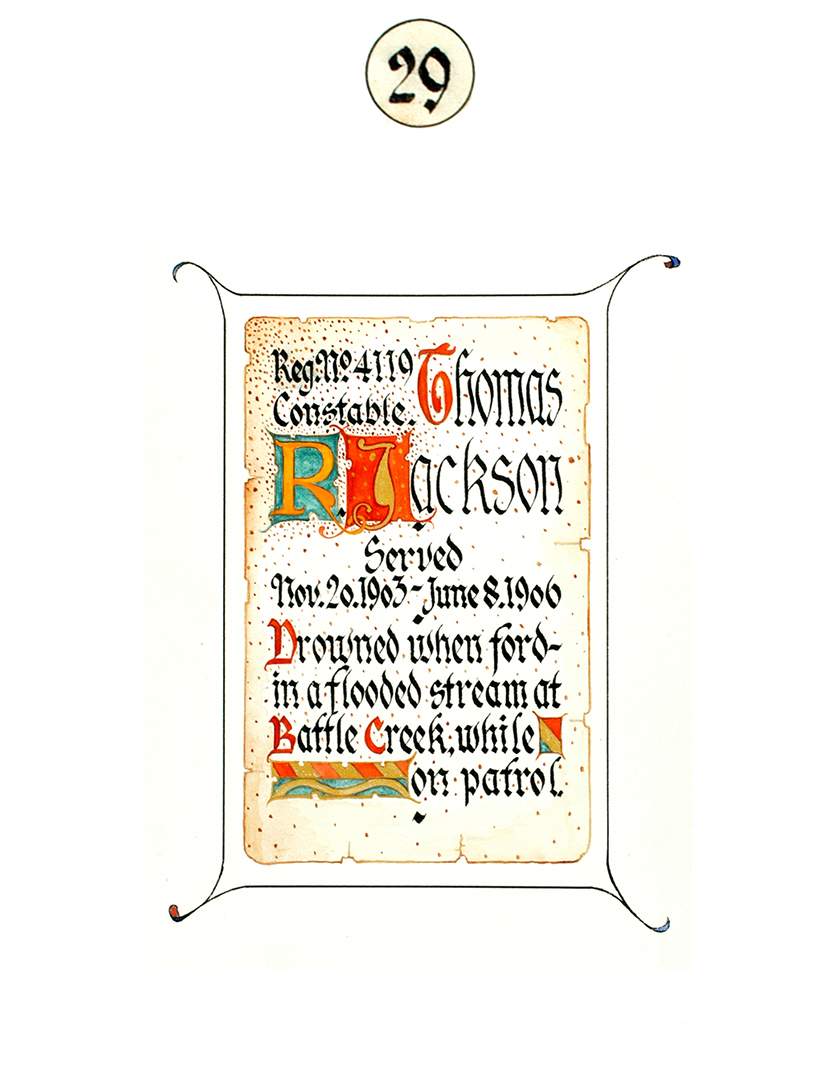 29
Reg. No. 4119 Thomas
Constable.
R. Jackson
Served
Nov. 20. 1903 - June 8. 1906
Drowned when ford-
in a flooded stream at
Battle Creek, while
on patrol.